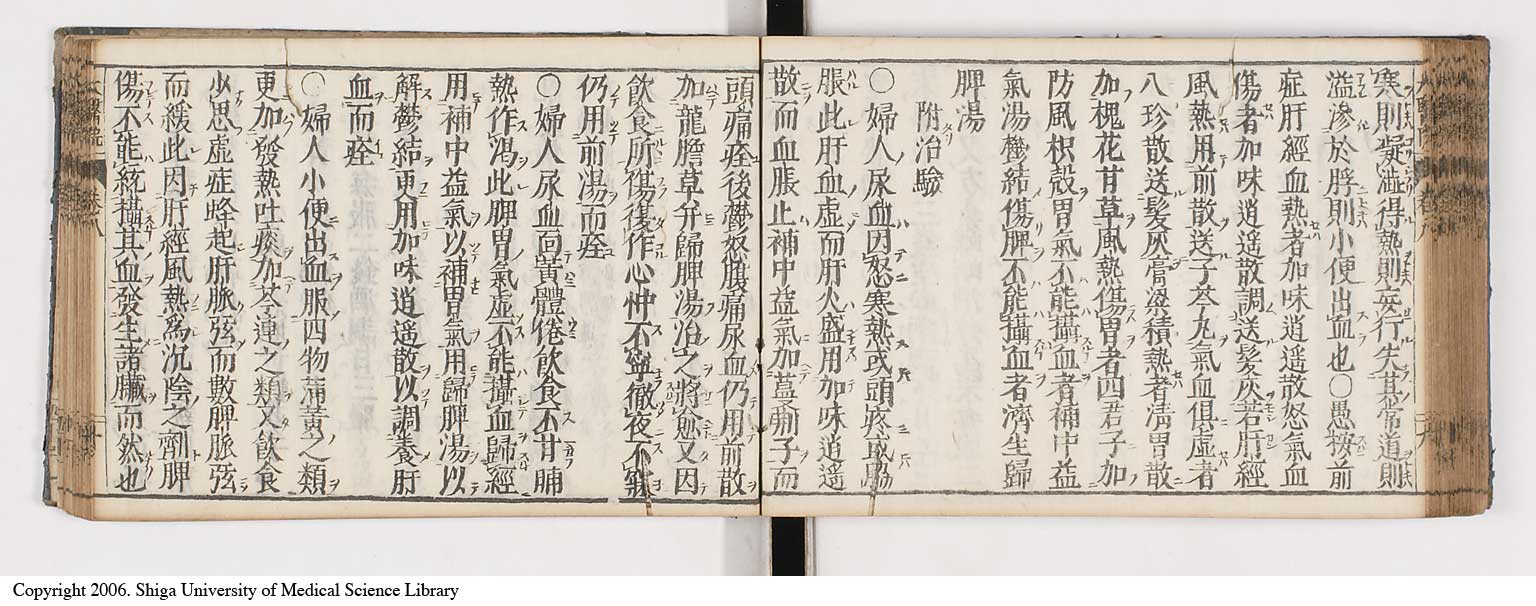 寒則凝澁得熱則妄行失其常道則
溢滲於脬則小便出血也○愚按前
症肝經血熱者加味逍遥散怒氣血
傷者加味逍遥散調送髮灰若肝經
風熱用前散送子芩丸氣血俱虚者
八珍散送髮灰膏粱積熱者清胃散
加槐花甘草風熱傷胃者四君子加
防風枳殻胃氣不能攝血者補中益
氣湯欝結傷脾不能攝血者濟生歸
脾湯
附治驗
○婦人尿血因怒寒熱或頭疼或脇
脹此肝血虚而肝火盛用加味逍遥
散而血脹止補中益氣加蔓荊子而
頭痛痊後欝怒腹痛尿血仍用前散
加龍膽草并歸脾湯治之將愈又因
飲食所傷復作心忡不寧徹夜不寐
仍用前湯而痊
○婦人尿血面黄體倦飲食不甘晡
熱作渇此脾胃氣虚不能攝血歸經
用補中益氣以補胃氣用歸脾湯以
解欝結更用加味逍遥散以調養肝
血而痊
○婦人小便出血服四物蒲黄之類
更加發熱吐痰加芩連之類又飲食
少思虚症蜂起肝脈弦而數脾脈弦
而緩此因肝經風熱爲沉陰之劑脾
傷不能統攝其血發生諸臟而然也
Copyright 2006. Shiga University of Medical Science Library